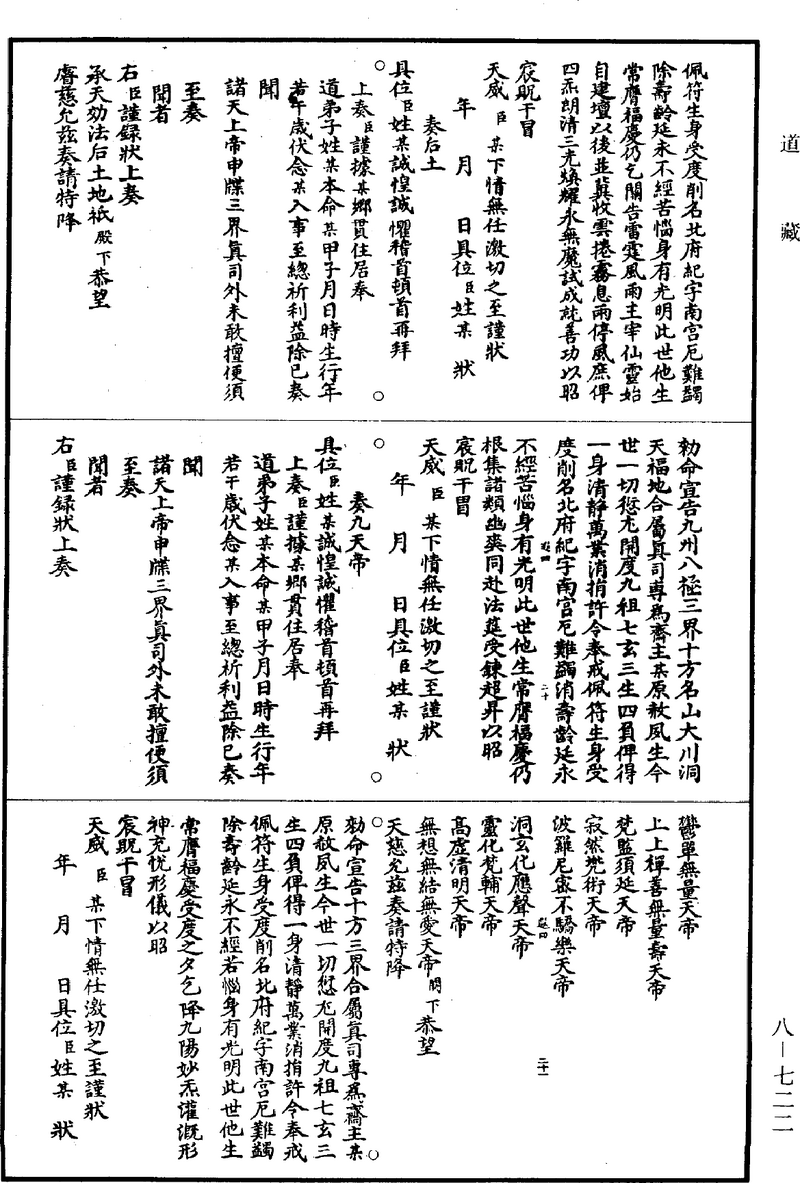 道藏
佩符生身受度削名北府紀字南宮厄難蠲
除壽齡延永不經苦惱身有光明此世他生
常膺福慶仍乞關告雷霆風雨主宰仙靈始
自建壇以後並冀收雲捲霧息雨停風庶俾
四炁朗清三光煥耀永無魔試成就善功以昭
宸眖干冒
天威臣某下情無任激切之至謹狀
年月日具位臣姓某狀
奏后土
具位臣姓某誠惶誠懼稽首頓首再拜
上奏臣謹據某鄉貫住居奉
道弟子姓某本命某甲子月日時生行年
若干歲伏念某入事至總祈利益除已奏
聞
諸天上帝申牒三界真司外未敢擅便須
至奏
聞者
右臣謹錄狀上奏
承天効法后土地祇殿下恭望
睿慈允茲奏請特降
勑命宣告九州八極三界十方名山大川洞
天福地合屬真司專為齋主某原赦夙生今
世一切愆尤開度九祖七玄三生四負俾得
一身清靜萬業消捐許令奉戒佩符生身受
度削名北府紀字南宮厄難蠲消壽齡延永
不經苦惱身有光明此世他生常膺福慶仍
根集諸類幽爽同赴法筵受鍊超昇以昭
宸眖干冒
天威臣某下情無任激切之至謹狀
年月日具位臣姓某狀
奏九天帝
具位臣姓某誠惶誠懼稽首頓首再拜
上奏臣謹據某鄉貫住居奉
道弟子姓某本命某甲子月日時生行年
若干歲伏念某入事至總祈利益除已奏
聞
諸天上帝申牒三界真司外未敢擅便須
至奏
聞者
右臣謹錄狀上奏
鬱單無量天帝
上上禪善無量壽天帝
梵監須延天帝
寂然兠術天帝
波羅尼蜜不驕樂天帝
洞玄化應聲天帝
靈化梵輔天帝
高虛清明天帝
無想無結無愛天帝閤下恭望
天慈允茲奏請特降
勑命宣告十方三界合屬真司專為齋主某
原赦夙生今世一切愆尤開度九祖七玄三
生四負俾得一身清靜萬業消捐許令奉戒
佩符生身受度削名北府紀字南宮厄難蠲
除壽齡延永不經苦惱身有光明此世他生
常膺福慶受度之夕乞降九陽妙炁灌溉形
神充悅形儀以昭
宸眖干冒
天威臣某下情無任激切之至謹狀
年月日具位臣姓某狀
八－七二二